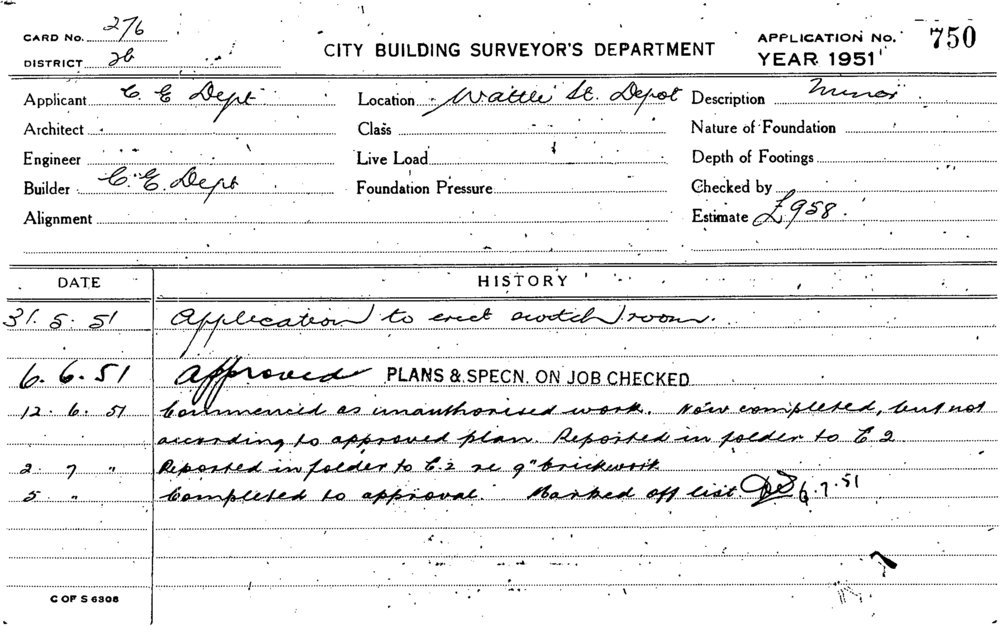 CARD No. 276
DISTRICT 2b
CITY BUILDING SURVEYOR'S DEPARTMENT
APPLICATION No. 750
YEAR 1951
Applicant C. E Dept Location Wattle St. Depot Description Minor
Architect Class Nature of Foundation
Engineer Live Load Depth of Footings
Builder C. E. Dept Foundation Pressure Checked by
Alignment Estimate £958.
DATE HISTORY
31. 5. 51 Application to erect switch room.
6. 6. 51 Approved PLANS & SPECN. ON JOB CHECKED
12. 6. 51 Commenced as unauthorised work. Now completed, but not
according to approved plan. Reported in folder to C.2
2. 7 " Reported in folder to C.2 re 9" brickwork
5. " Completed to approval. Marked off list 6.7.51
C OF S 6308